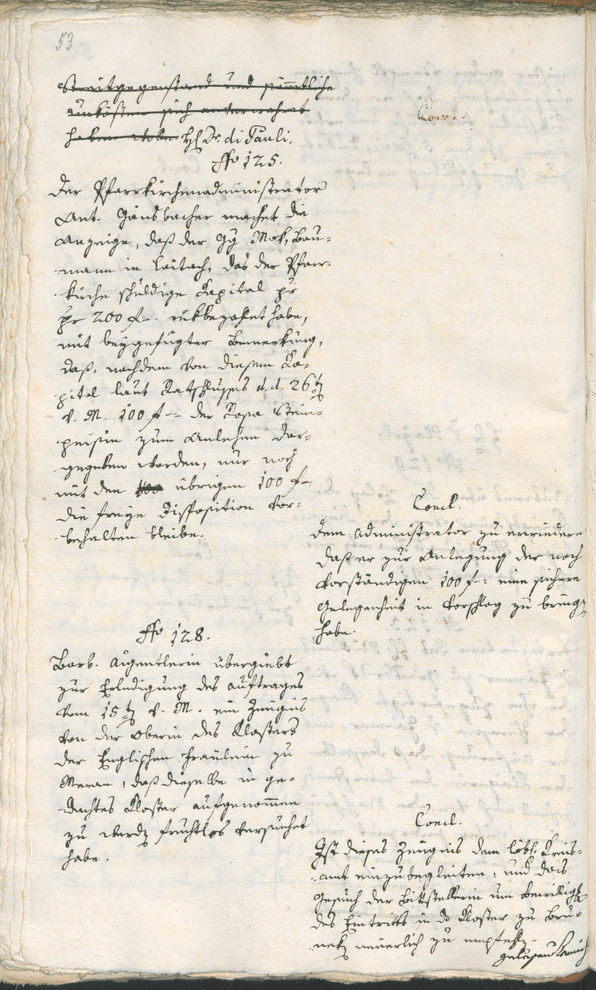 53
Streitgegenstand und sämmtliche
Unkösten sich
haben H. Dr. di Pauli.
No 125.
Der Pfarrkirchenadministrator
Ant. Gänsbacher machet die
Anzeige, daß der Gg Bau-
mann in das der Pfarr-
kirche schuldige Kapital pr
pr 200 f. rükbezahlet habe,
mit beygefügter Bemerkung,
daß, nachdem von diesem Ka-
pital laut Rathschlusses d. d. 26t
v. M. 100 f der
zum Anlehen dar-
gegeben worden, nur noch
mit den 100 übrigen 100 f
die freye Disposition vor-
behalten bleibe.
Concl.
Dem Administrator zu erwiedern
daß er zur Anlegung der noch
vorständigen 100 f: eine sichere
Gelegenheit in Vorschlag zu bringen
habe.
No 128.
Barb. Augentlerin übergiebt
zur Erledigung des Auftrages
vom 15t v. M. ein Zeugnis
von der Oberin des Klosters
der Englischen Fräulein zu
Meran, daß dieselbe in ge-
dachtes Kloster aufgenommen
zu werden fruchtlos versuchet
habe.
Concl.
Ist dieses Zeugnis dem löbl. Kreis-
amt einzubegleiten, und das
Gesuch der Bittstellerin um Bewilligung
des Eintritts in Kloster zu Bru-
nek neuerlich zu empfehlen.
gelesen